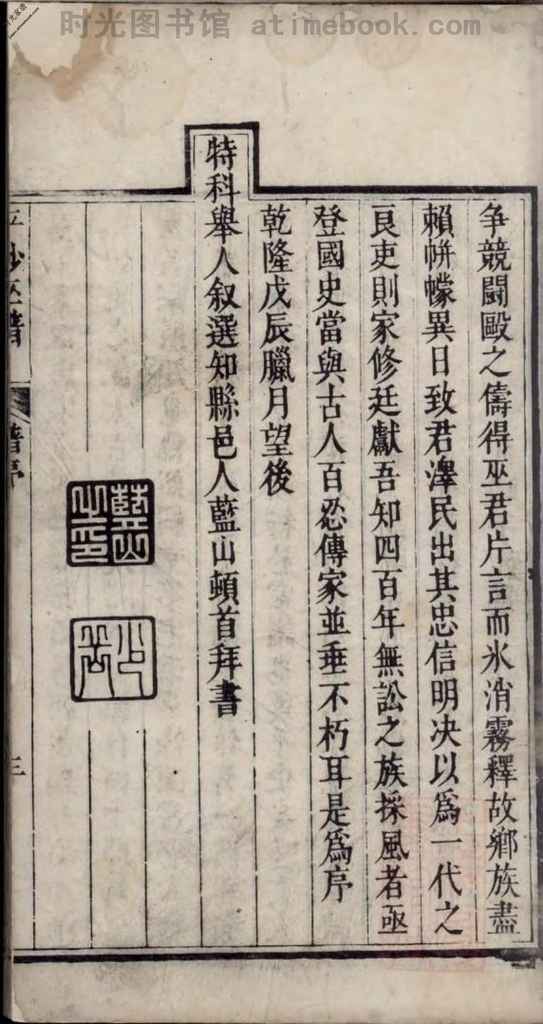 时光图书馆 atimebook.com
争競鬪毆之儔得巫君片言而氷消霧釋故鄉族盡
賴帡幪異日致君澤民出其忠信明决以爲一代之
良吏則家修廷獻吾知四百年無訟之族採風者亟
登國史當與古人百忍傳家並垂不朽耳是爲序
乾隆戊辰臘月望後
特科舉人叙選知縣邑人藍山頓首拜書
藍山之印
巫譜
譜序
三